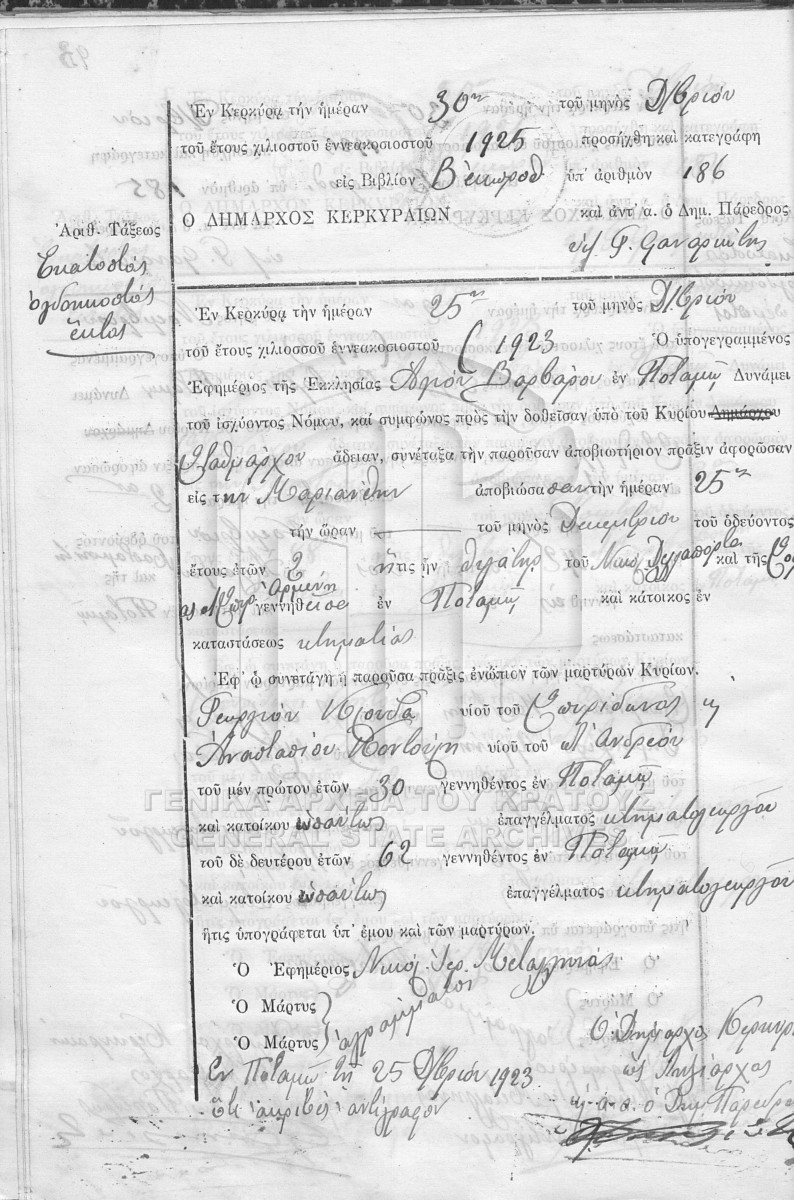 Ἐν Κερκύρᾳ τὴν ἡμέραν 30ην τοῦ μηνὸς Δ/βρίου
τοῦ ἔτους χιλιοστοῦ ἐννεακοσιοστοῦ 1925 προσήχθη καὶ κατεγράφη
εἰς Βιβλίον ὑπ' ἀριθμὸν 186
Ο ΔΗΜΑΡΧΟΣ ΚΕΡΚΥΡΑΙΩΝ καὶ ἀντ' α. ὁ Δημ. Πάρεδρος
Ἀριθ. Τάξεως
Ἑκατοστός
ὀγδοηκοστός
ἕκτος
Ἐν Κερκύρᾳ τὴν ἡμέραν 25ην τοῦ μηνὸς Δ/βρίου
τοῦ ἔτους χιλιοσσοῦ ἐννεακοσιοστοῦ ( 1923 Ὁ ὑπογεγραμμένος
Ἐφημέριος τῆς Ἐκκλησίας Ἁγίου Βαρβάρου ἐν Ποταμῷ Δυνάμει
τοῦ ἰσχύοντος Νόμου, καὶ συμφώνος πρὸς τὴν δοθεῖσαν ὑπὸ τοῦ Κυρίου Δημάρχου
Σταθμάρχου ἄδειαν, συνέταξα τὴν παροῦσαν ἀποβιωτήριον πρᾶξιν ἀφορῶσαν
εἰς την Μαριάνθην ἀποβιώσασαν τὴν ἡμέραν 25ην
τὴν ὥραν — τοῦ μηνὸς Δεκεμβρίου τοῦ ὁδεύοντος
ἔτους ἐτῶν 2 ἥτις ἦν θυγάτηρ τοῦ Νικολ. Δελαπόρτα καὶ τῆς
Ἀρμένη γεννηθεῖσα ἐν Ποταμῷ καὶ κάτοικος ἐν
καταστάσεως κτηματίας
Ἐφ' ᾧ συνετάγη ἡ παροῦσα πρᾶξις ἐνώπιον τῶν μαρτύρων Κυρίων.
Γεωργίου Κλούδα υἱοῦ τοῦ Σπυρίδωνος κ
Ἀναστασίου Κοντούρη υἱοῦ τοῦ π. Ἀνδρέου
τοῦ μὲν πρώτου ἐτῶν 30 γεννηθέντος ἐν Ποταμῷ
καὶ κατοίκου ὡσαύτως ἐπαγγέλματος κτηματογεωργοῦ
τοῦ δὲ δευτέρου ἐτῶν 62 γεννηθέντος ἐν Ποταμῷ
καὶ κατοίκου ὡσαύτως ἐπαγγέλματος κτηματογεωργοῦ
ἥτις ὑπογράφεται ὑπ' ἐμοῦ καὶ τῶν μαρτύρων.
Ὁ Ἐφημέριος Νικόλ. Ἱερ. Μεταλληνός
Ὁ Μάρτυς
Ὁ Μάρτυς ἀγράμματοι
Ἐν Ποταμῷ τῇ 25 Δ/βρίου 1923
Ὅτι ἀκριβὲς ἀντίγραφον
Ὁ Δήμαρχος Κερκυρ
ὡς Ληξίαρχος
κ. ἀ. α. ὁ Δημ. Πάρεδρο
ΓΕΝΙΚΑ ΑΡΧΕΙΑ ΤΟΥ ΚΡΑΤΟΥΣ
GENERAL STATE ARCHIVES